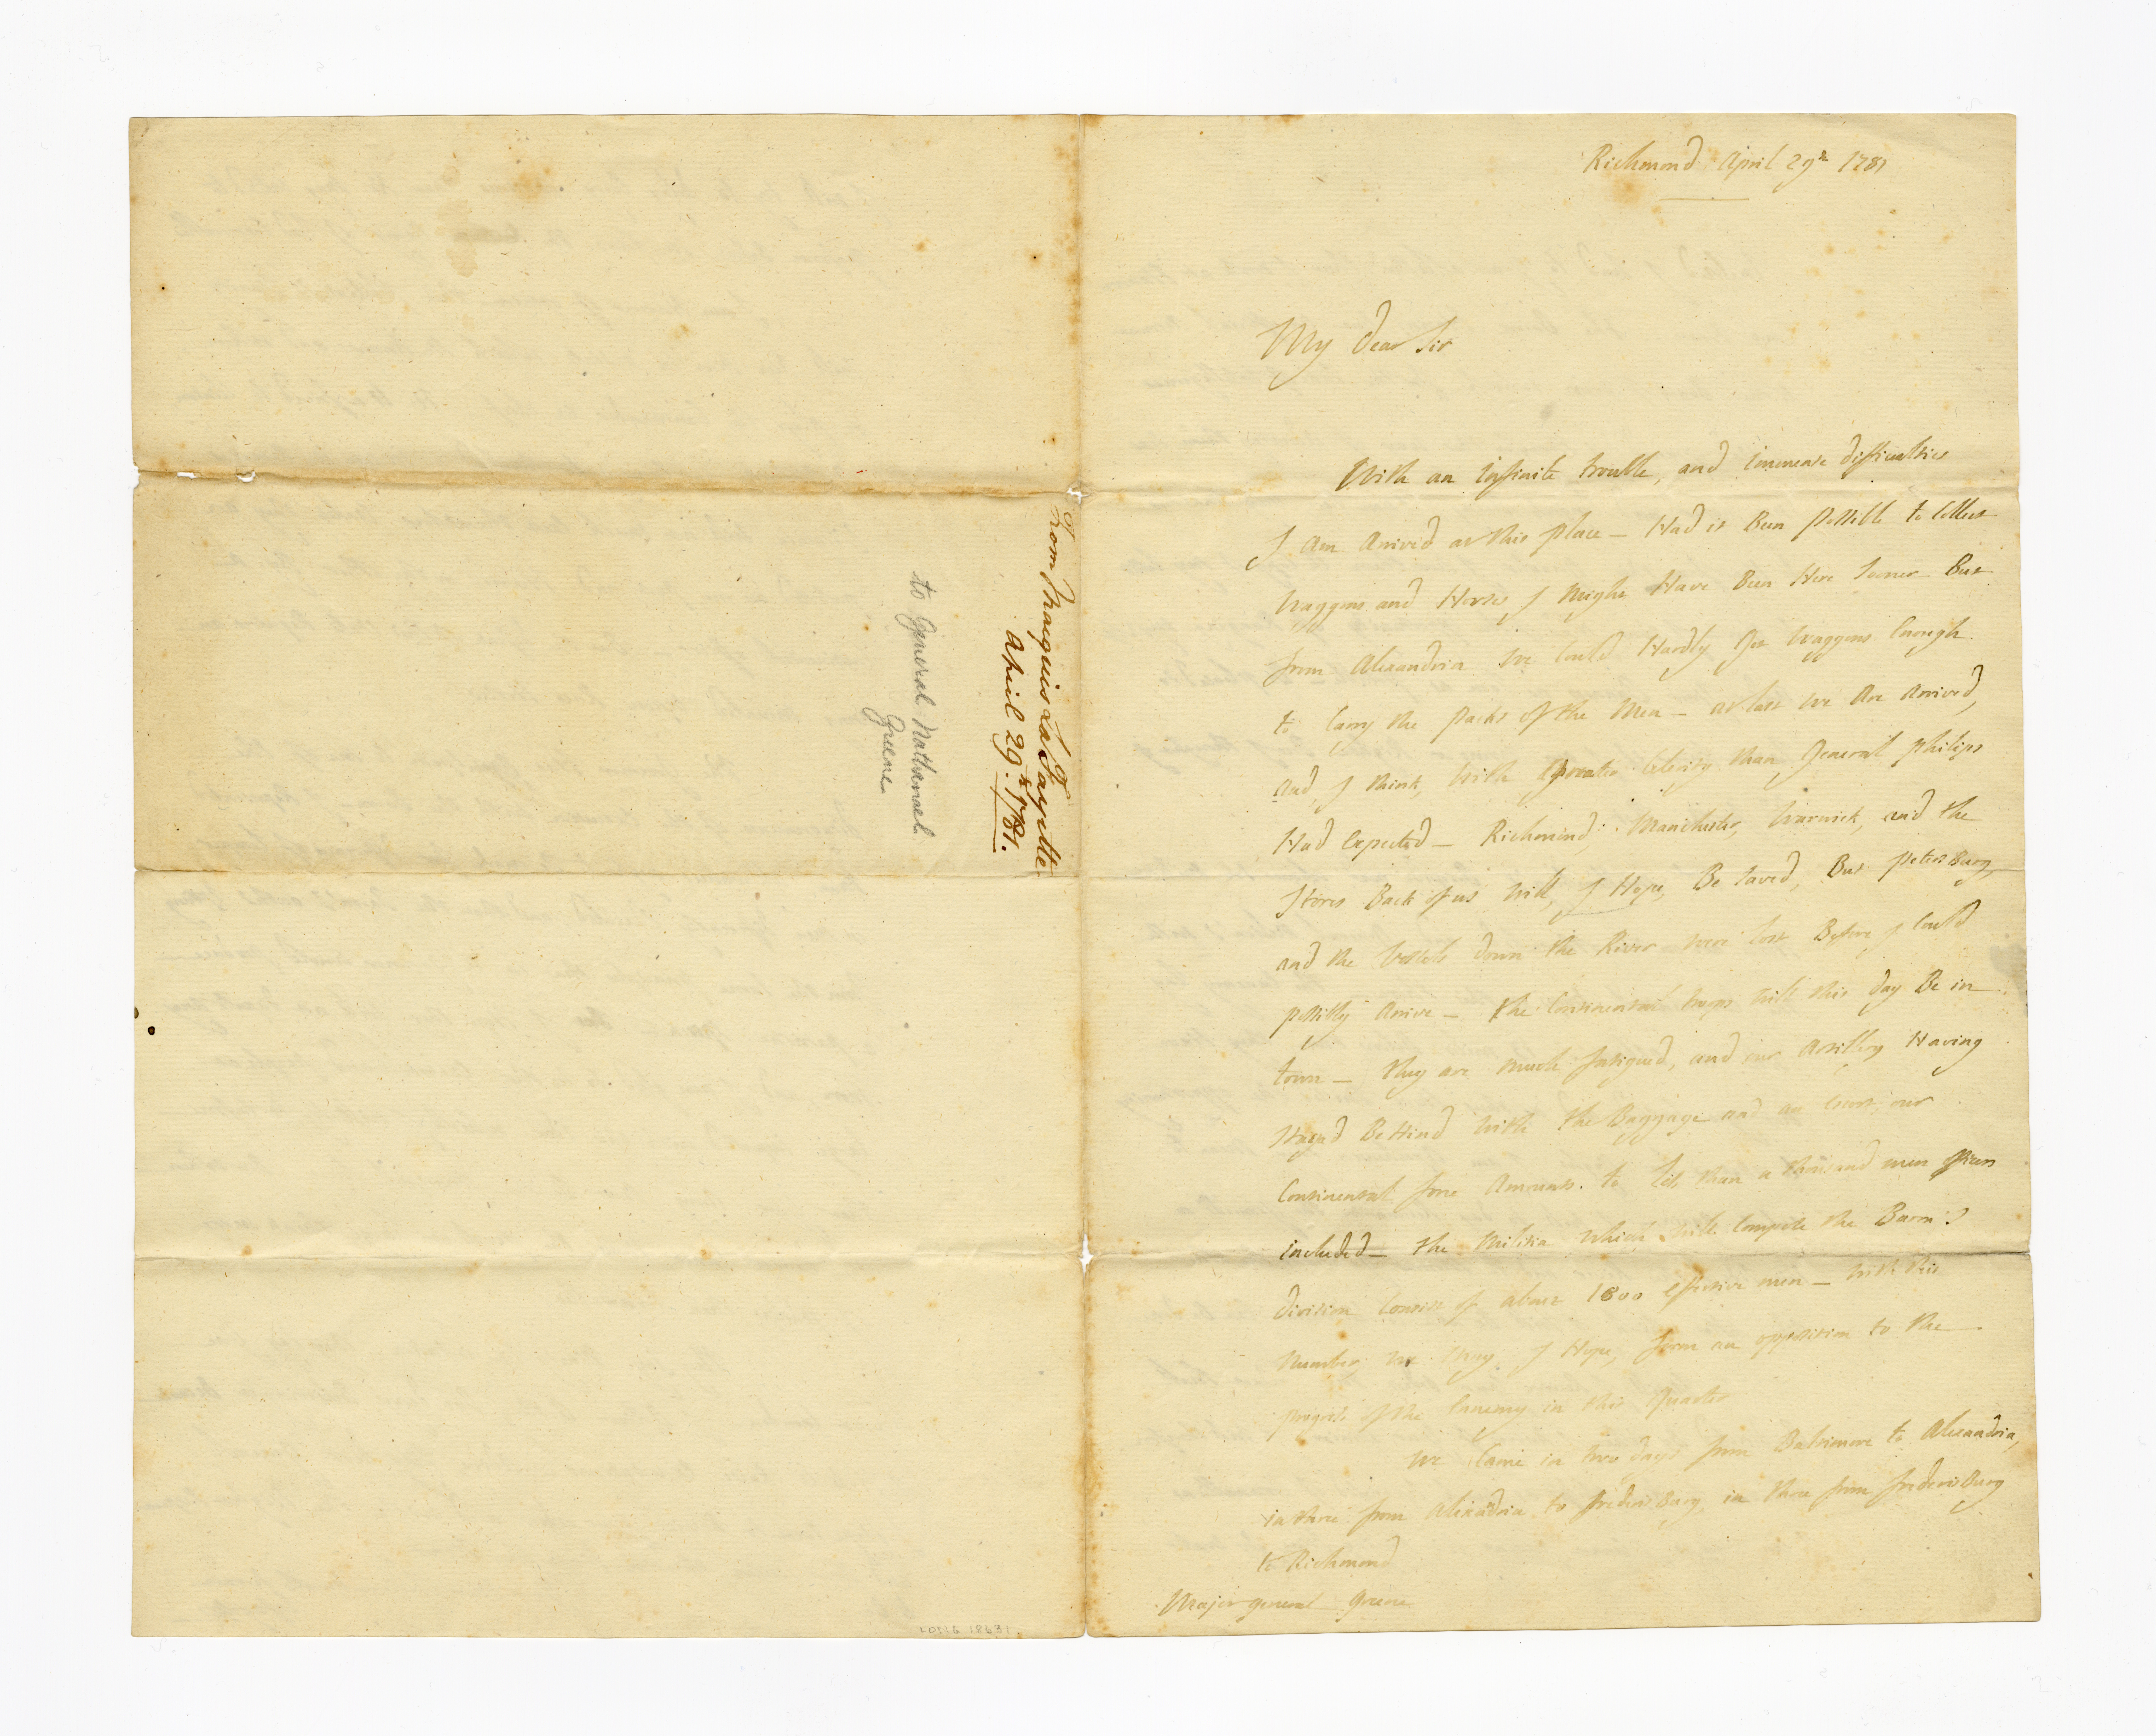 From Marquis La Fayette
April 29th 1781.
to General Nathanael
Greene
Richmond April 29th 1781
My dear Sir
With an infinite trouble, and immense difficulties
I am arrived at this place — Had it Been possible to Collect
Waggons and Horses I might Have Been Here sooner But
from Alexandria we Could Hardly get Waggons Enough
to Carry the packs of the Men — at last we Are Arrived,
and, I think, with greater Celerity than General philips
Had Expected — Richmond, Manchester, Warwick, and the
Stores Back of us will, I Hope, Be saved, But petersburg,
and the Vessels down the River were lost Before I Could
possibly Arrive — the Continental troops will this day Be in
town — they are much fatigued, and our Artillery Having
Stayed Behind with the Baggage and an Escort, our
Continental force Amounts to less than a thousand men officers
included — the Militia which will Compose the Baron's
division Consist of about 1800 effective men — with this
Number we may, I Hope, form an opposition to the
progress of the Ennemy in this Quarter
We Came in two days from Baltimore to Alexandria,
in three from Alexandria to frederisburg, in three from frederisburg
to Richmond
Major general Greene